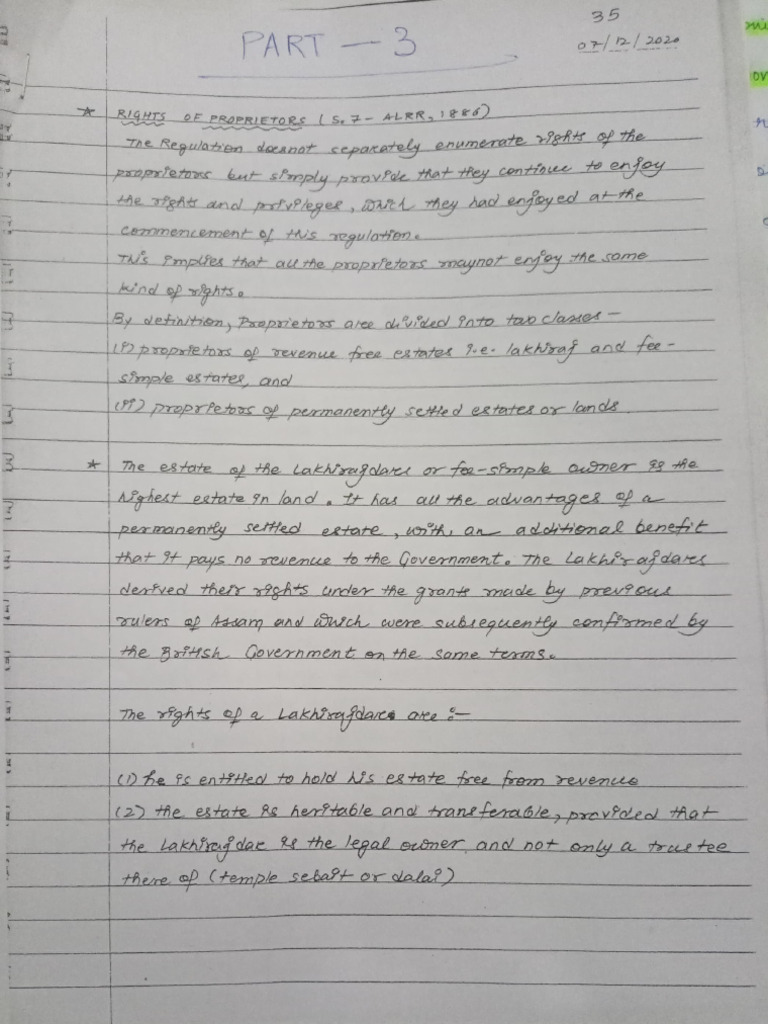 35
PART — 3
07/12/2020
* RIGHTS OF PROPRIETORS (S.7- ALRR, 1886)
The Regulation doesnot separately enumerate rights of the
proprietors but simply provide that they continue to enjoy
the rights and privileges, which they had enjoyed at the
commencement of this regulation.
This implies that all the proprietors maynot enjoy the same
kind of rights.
By definition, Proprietors are divided into two classes—
(i) proprietors of revenue free estates i.e. lakhiraj and fee-
simple estates, and
(ii) proprietors of permanently settled estates or lands
* The estate of the Lakhirajdars or fee-simple owner is the
highest estate in land. It has all the advantages of a
permanently settled estate, with, an additional benefit
that it pays no revenue to the Government. The Lakhirajdars
derived their rights under the grants made by previous
rulers of Assam and which were subsequently confirmed by
the British Government on the same terms.
The rights of a Lakhirajdars are :-
(1) he is entitled to hold his estate free from revenue
(2) the estate is heritable and transferable, provided that
the Lakhirajdar is the legal owner and not only a trustee
there of (temple sebait or dalai)